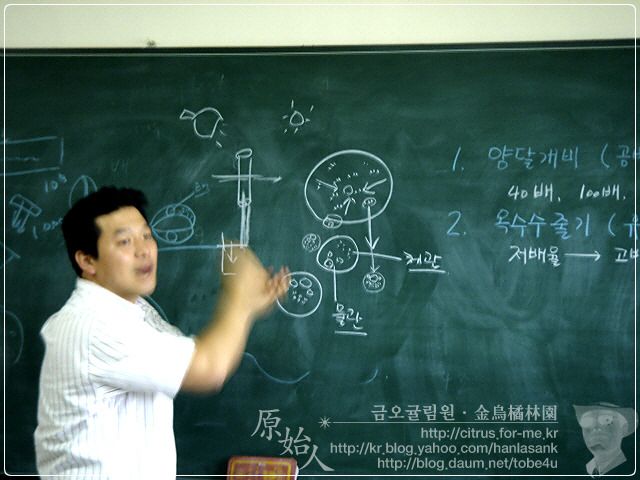 1. 양달개비 (공변
40배, 100배,
2. 옥수수 줄기 (유
저배율 → 고배
체관
물관
原始人
금오귤림원 · 金烏橘林園
http://citrus.for-me.kr
http://kr.blog.yahoo.com/hanlasank
http://blog.daum.net/tobe4u